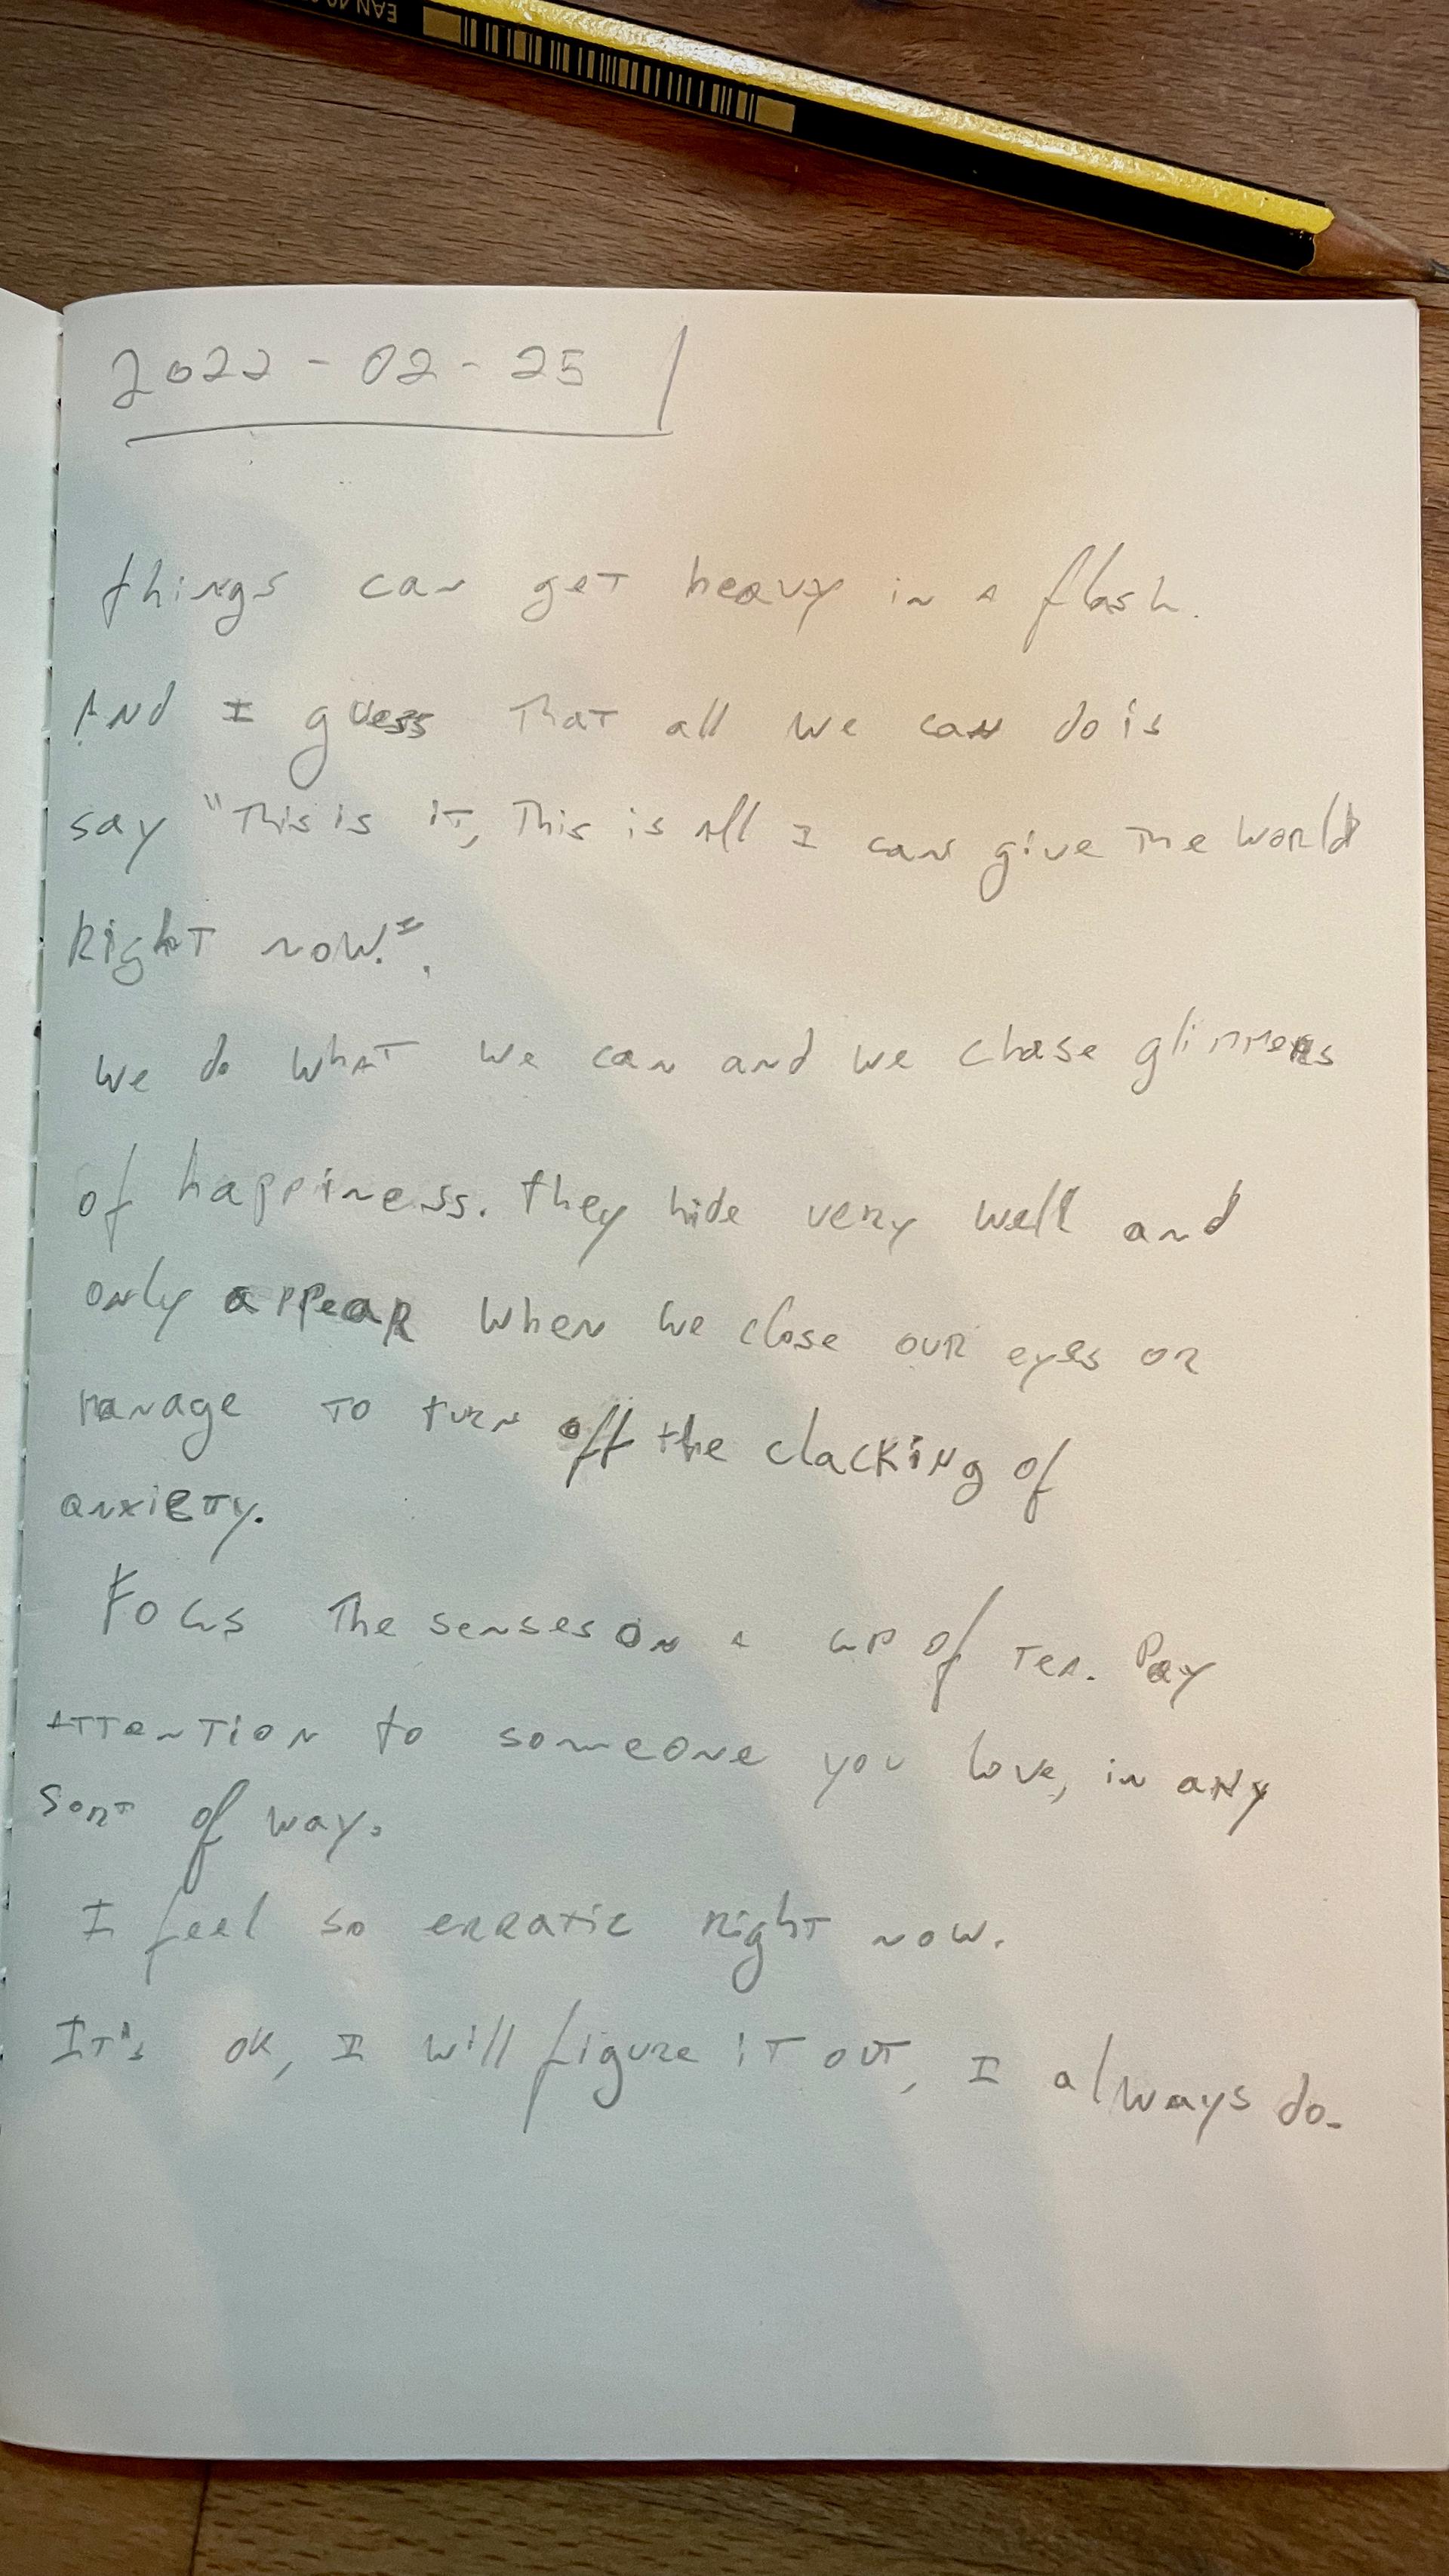 EAN 40
2022 - 02 - 25
things can get heavy in a flash.
And I guess that all we can do is
say "This is it, This is all I can give the world
Right now.".
we do what we can and we chase glimmers
of happiness. they hide very well and
only appear when we close our eyes or
manage to turn off the clacking of
anxiety.
Focus the senses on a cup of tea. Pay
attention to someone you love, in any
sort of way.
I feel so erratic right now.
It's ok, I will figure it out, I always do.